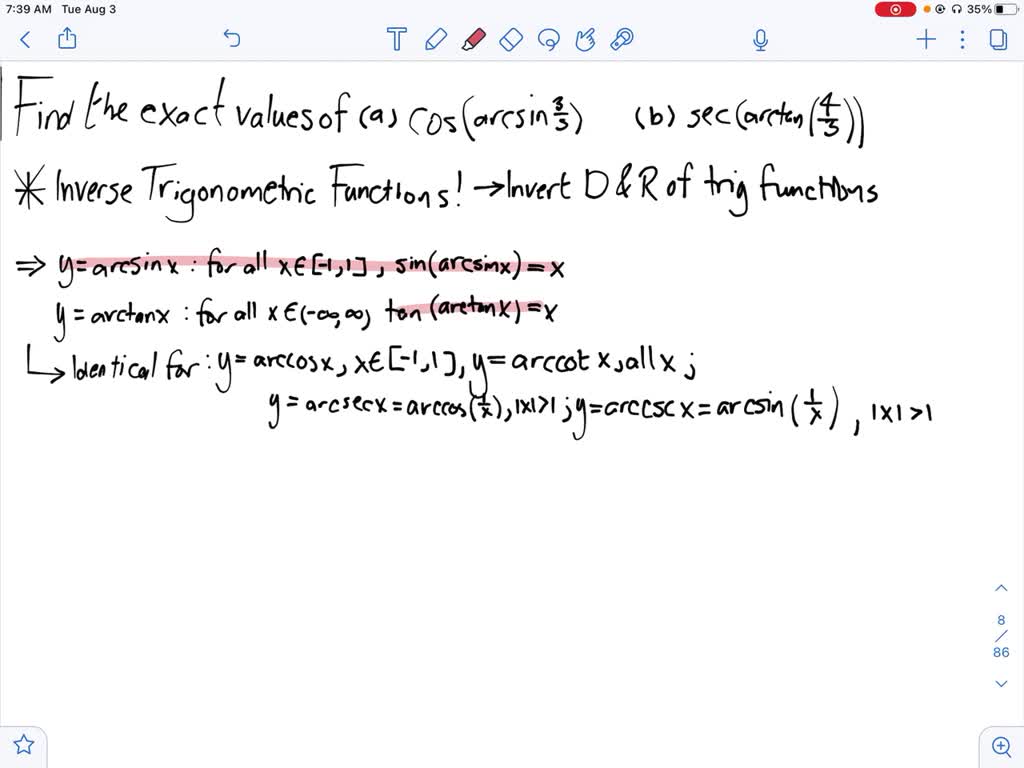 7:39 AM Tue Aug 3 35%
T
Find the exact values of (a) cos(arcsin 3/5) (b) sec(arctan(4/3))
* Inverse Trigonometric Functions! → Invert D & R of trig functions
⇒ y = arcsin x : for all x ∈ [-1, 1], sin(arcsin x) = x
y = arctan x : for all x ∈ (-∞, ∞) tan(arctan x) = x
↳ Identical for: y = arccos x, x ∈ [-1, 1], y = arccot x, all x ;
y = arcsec x = arccos(1/x), |x| > 1 ; y = arccsc x = arcsin(1/x), |x| > 1
8
/
86